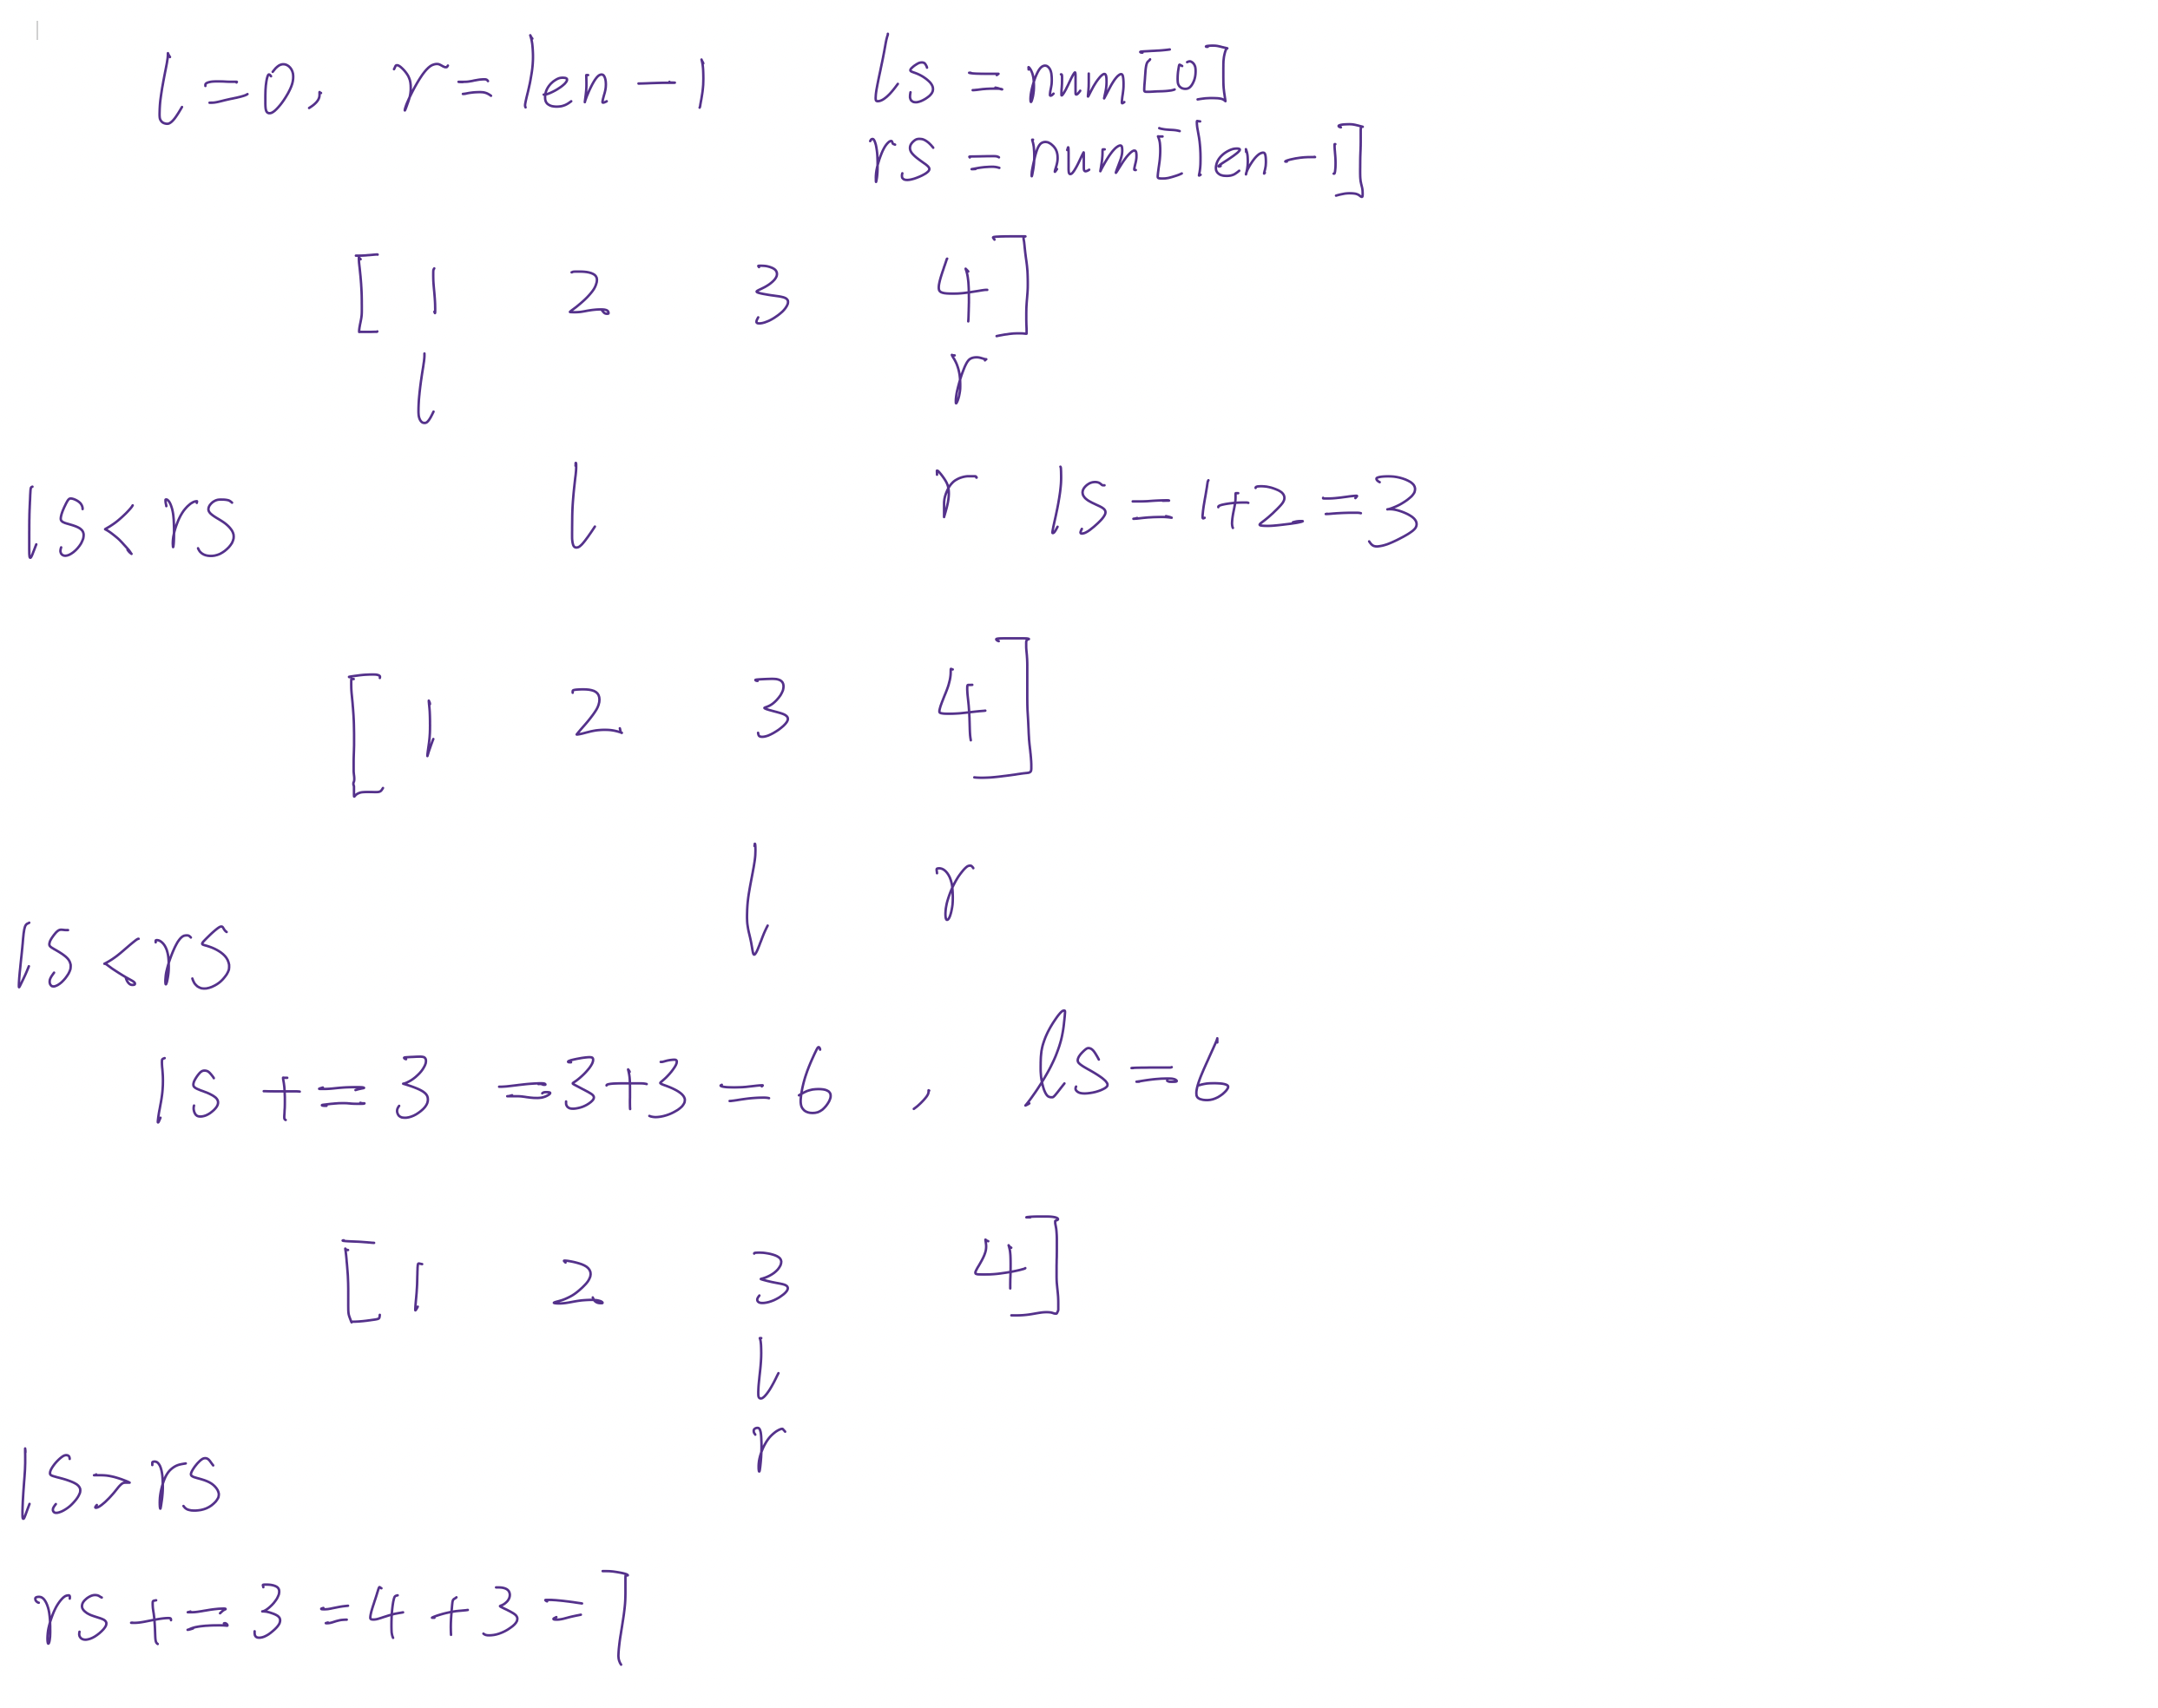 l=0, r=len-1 ls=num[0]
rs=num[len-1]
[1 2 3 4]
l r
ls<rs l r ls=1+2=3
[1 2 3 4]
l r
ls<rs
ls+=3 =3+3=6 , ls=6
[1 2 3 4]
l
r
ls>rs
rs+=3=4+3=7